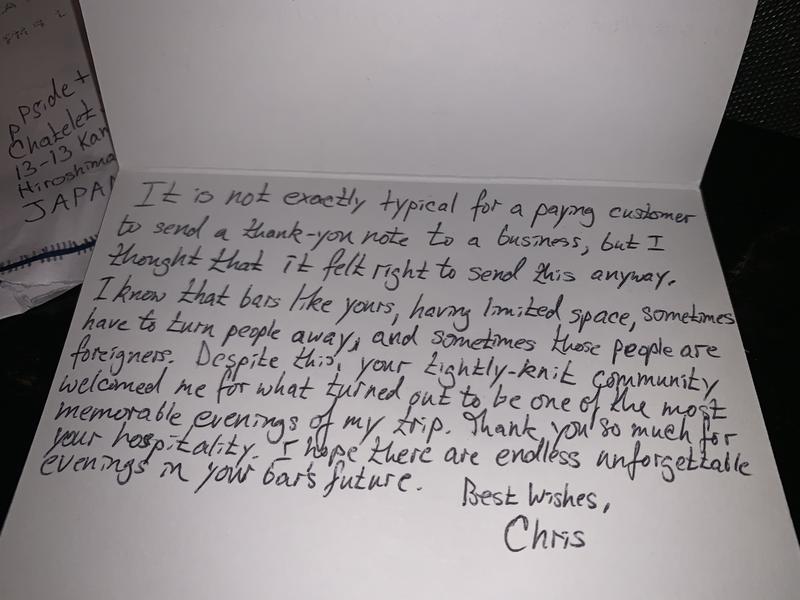 Pside +
Chatelet
13-13 Kan
Hiroshima
JAPAN
It is not exactly typical for a paying customer
to send a thank-you note to a business, but I
thought that it felt right to send this anyway.
I know that bars like yours, having limited space, sometimes
have to turn people away, and sometimes those people are
foreigners. Despite this, your tightly-knit community
welcomed me for what turned out to be one of the most
memorable evenings of my trip. Thank you so much for
your hospitality. I hope there are endless unforgettable
evenings in your bar's future.
Best Wishes,
Chris